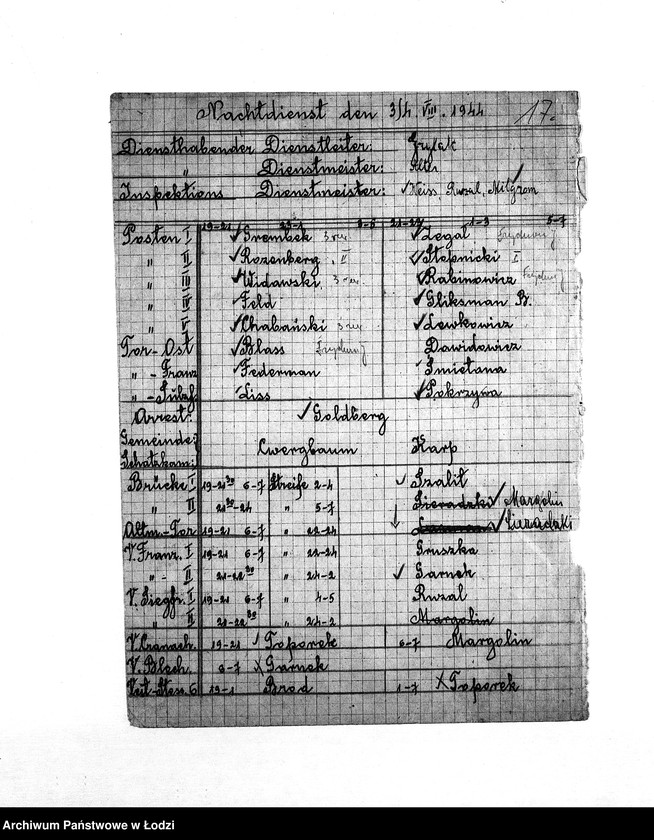 Nachtdienst den 3/4 VIII. 1944 17.
Diensthabender Dienstleiter:
" Dienstmeister: Alter
Inspektions Dienstmeister: Weiss, Rozal, Milgrom
19-21 23-1 3-5 21-23 1-3 5-7
Posten I Grembek Zegal
" II Rozenberg II Stepnicki I
" III Widawski Rabinowicz
" IV Feld Gliksman B.
" V Chabański Lewkowicz
Tor-Ost Blass Dawidowicz
" -Franz Federman Śmietana
" - Liss Pokrzywa
Arrest: Goldberg
Gemeinde:
Schatzkam: Cwergbaum Karp
Brücke I 19-21³⁰ 6-7 Streife 2-4 Szabil
" II 21³⁰-24 " 5-7 Sieradzki Margolin
Altm.-Tor 19-21 6-7 " 22-24 Sieradzki
V. Franz. I 19-21 6-7 " 22-24 Gruszka
" - II 21-22³⁰ " 24-2 Garnek
V. Siegfr. I 19-21 6-7 " 4-5 Rozal
" II 21-22³⁰ " 24-2 Margolin
V. Cranach. 19-21 Toporek 6-7 Margolin
V. Blech. 6-7 Garnek
6 19-1 Brod 1-7 Toporek
Archiwum Państwowe w Łodzi